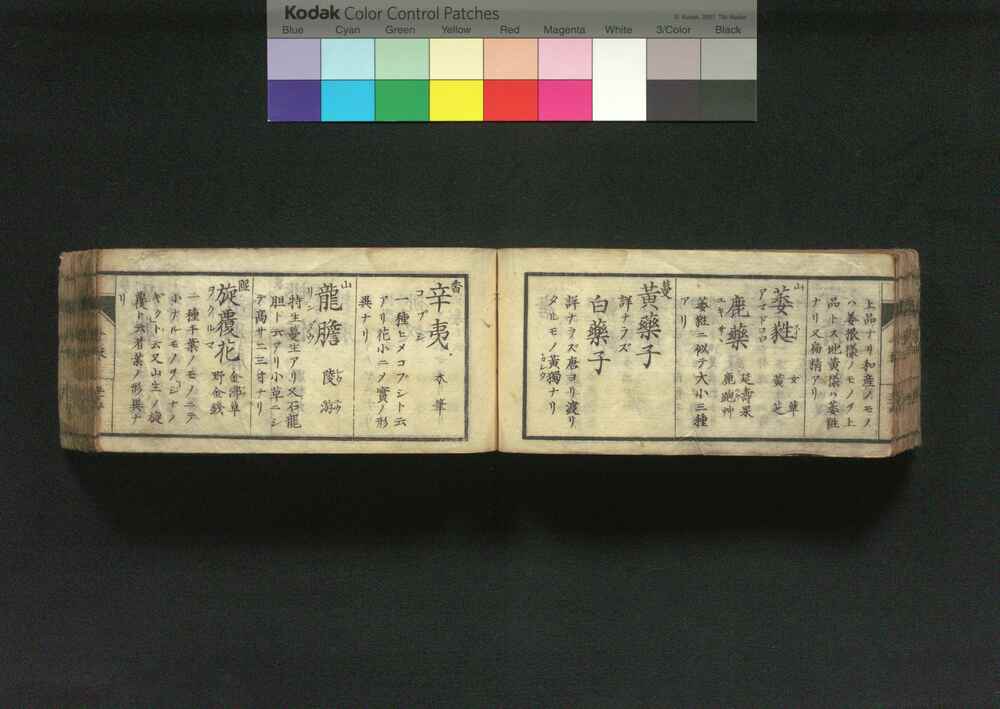 Kodak Color Control Patches
© Kodak, 2007 Tiffen
Blue Cyan Green Yellow Red Magenta White 3/Color Black
上品ナリ和産ノモノ
ハ萎蕤様ノモノヲ上
品トス此黄蕤ハ萎蕤
ナリ又偏精アリ
山 萎蕤 アマドコロ 女草 黄芝
鹿藥 ユキザサ 延壽果 鹿跑艸
萎蕤ニ似テ大小二種
アリ
蔓 黄藥子
詳ナラズ
白藥子
詳ナラズ唐ヨリ渡リ
タルモノ黄獨ナリ
香 辛夷 コブシ 木筆
一種ヒメコブシト云
アリ花小ニ〆實ノ形
異ナリ
山 龍膽 リンダウ 陵游
特生蔓生アリ又石龍
胆ト云アリ小草ニシ
テ高サ二三寸ナリ
隰 旋覆花 ヲグルマ 金沸草 野金銭
一種千葉ノモノニテ
小ナルモノヲシヤノ
ギクト云又山生ノ旋
覆ト云者葉ノ形異ナ
リ